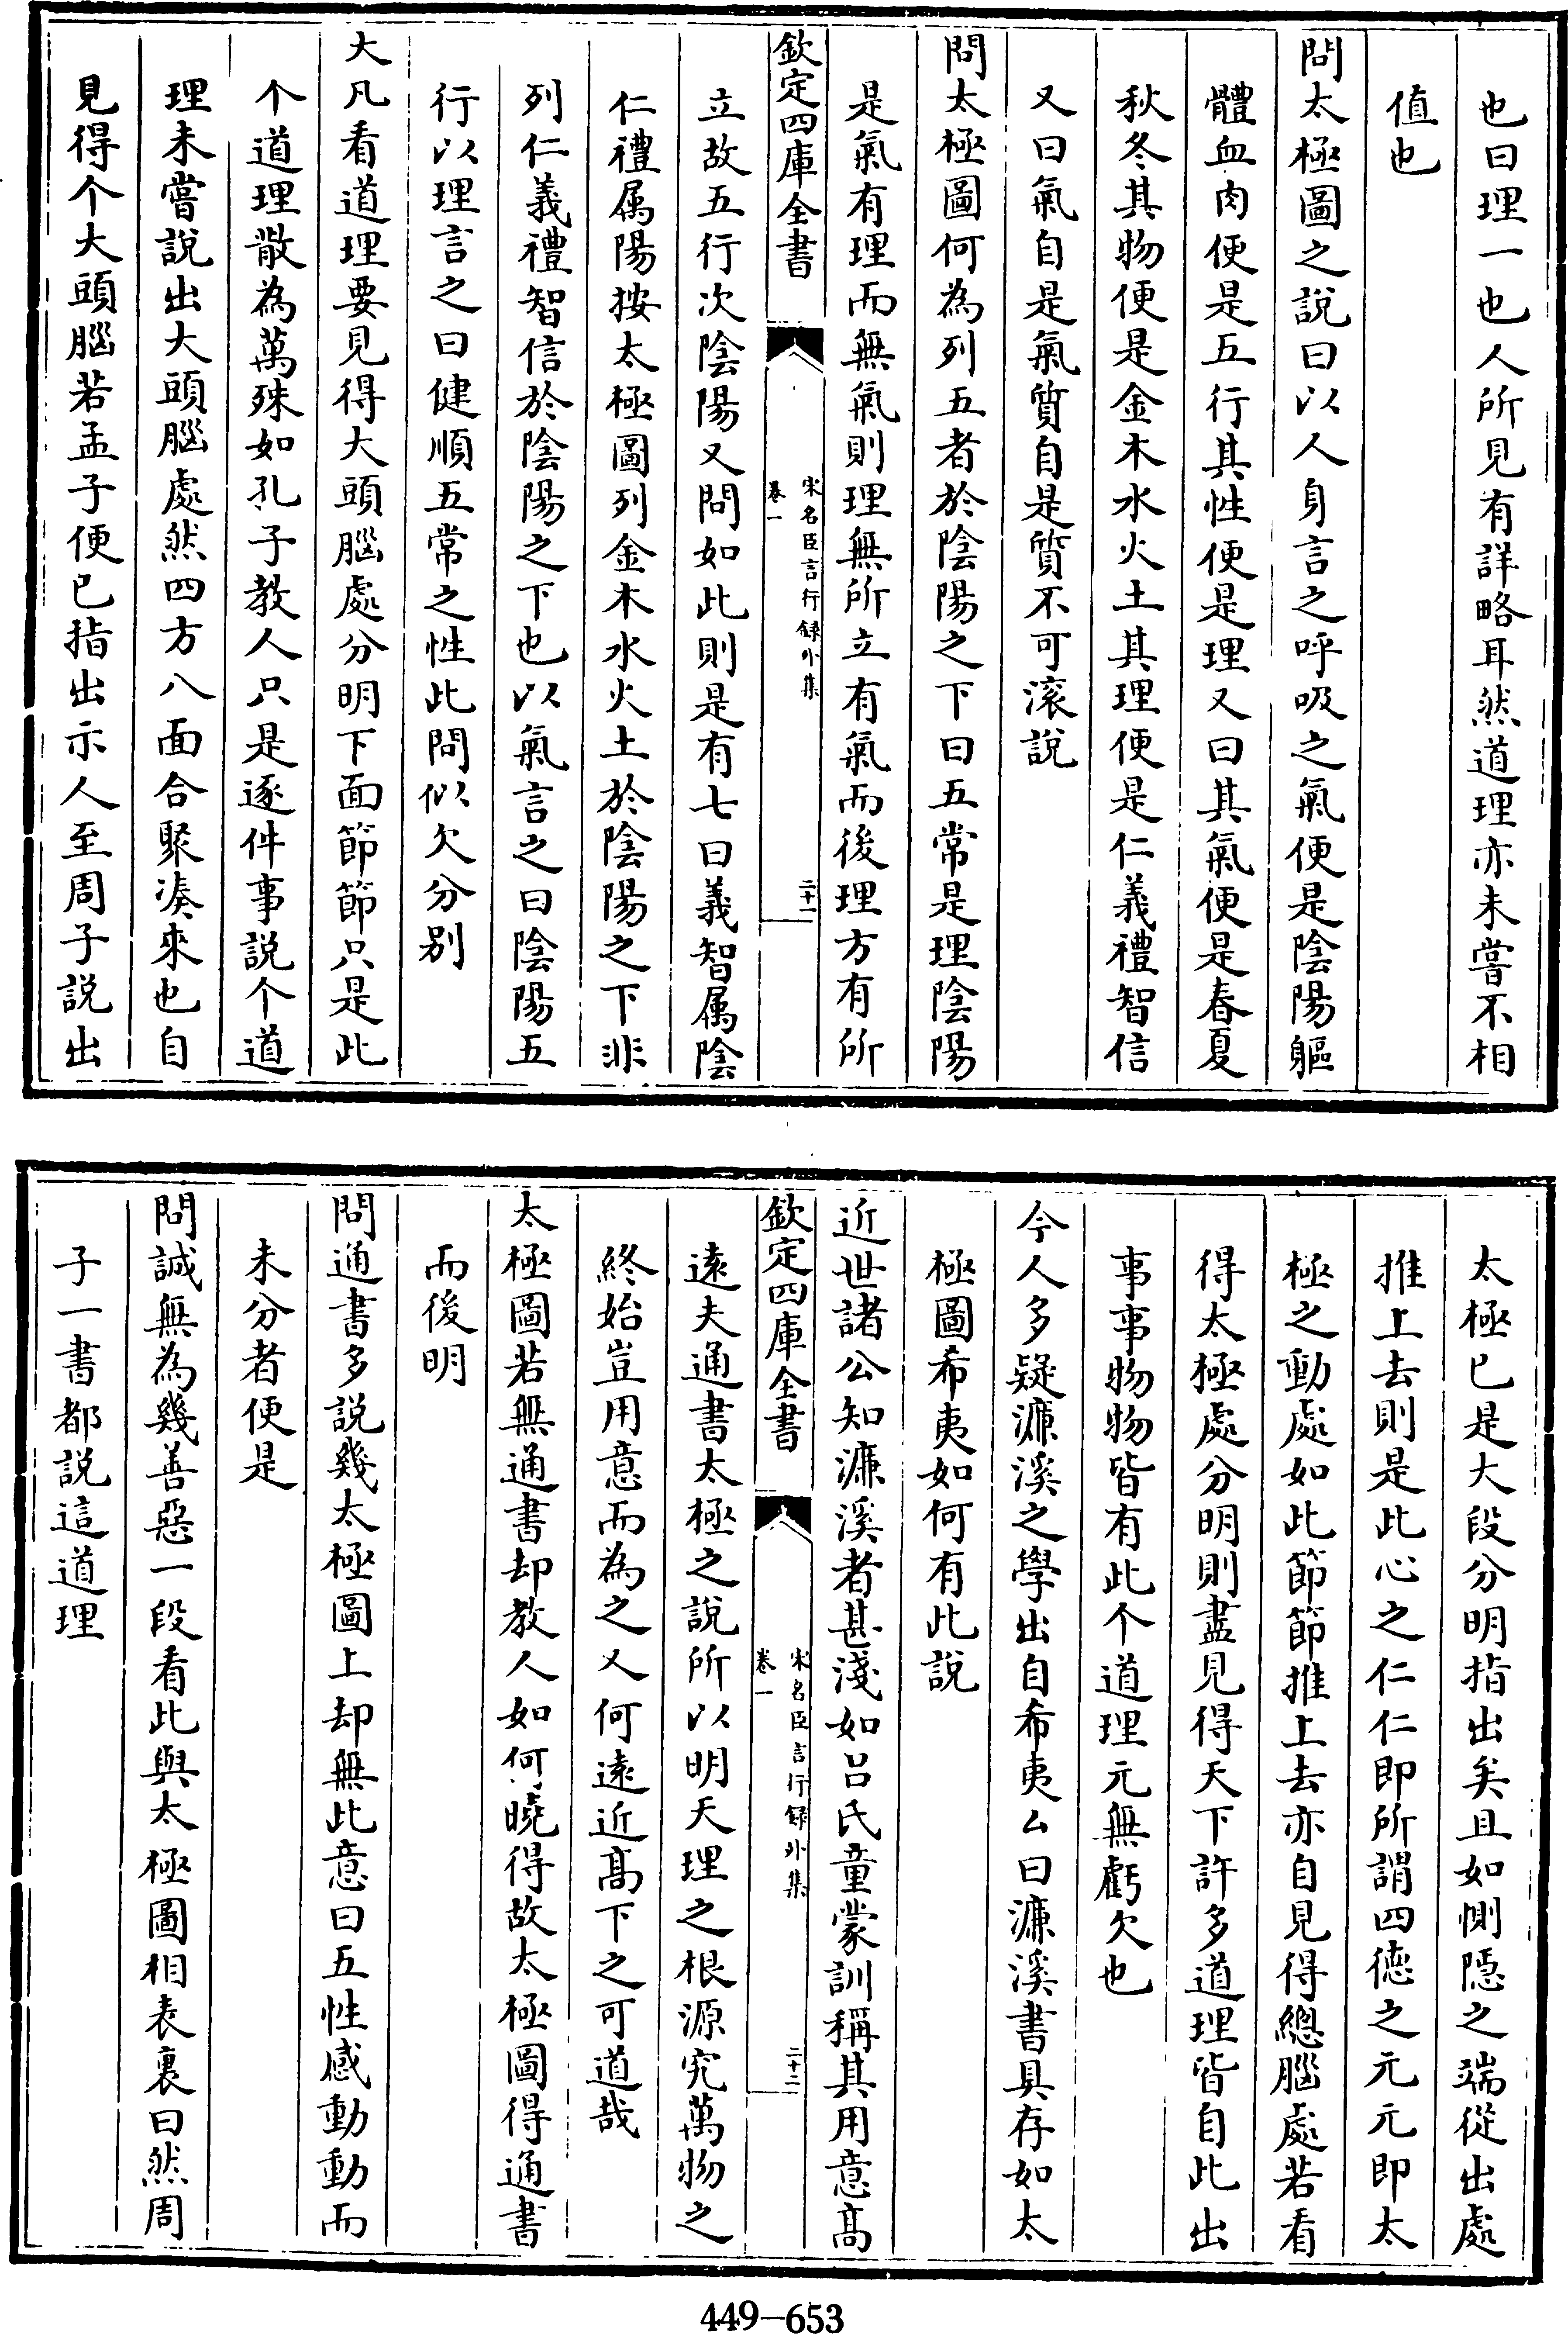 也曰理一也人所見有詳略耳然道理亦未嘗不相
值也
問太極圖之說曰以人身言之呼吸之氣便是陰陽軀
體血肉便是五行其性便是理又曰其氣便是春夏
秋冬其物便是金木水火土其理便是仁義禮智信
又曰氣自是氣質自是質不可滚說
問太極圖何為列五者於陰陽之下曰五常是理陰陽
是氣有理而無氣則理無所立有氣而後理方有所
欽定四庫全書
宋名臣言行録外集
卷一
二十一
立故五行次陰陽又問如此則是有七曰義智属陰
仁禮属陽按太極圖列金木水火土於陰陽之下非
列仁義禮智信於陰陽之下也以氣言之曰陰陽五
行以理言之曰健順五常之性此問似欠分别
大凡看道理要見得大頭腦處分明下面節節只是此
个道理散為萬殊如孔子教人只是逐件事說个道
理未嘗說出大頭腦處然四方八面合聚湊來也自
見得个大頭腦若孟子便已指出示人至周子說出
太極已是大段分明指出矣且如惻隱之端從出處
推上去則是此心之仁仁即所謂四徳之元元即太
極之動處如此節節推上去亦自見得總腦處若看
得太極處分明則盡見得天下許多道理皆自此出
事事物物皆有此个道理元無虧欠也
今人多疑濂溪之學出自希夷公曰濂溪書具存如太
極圖希夷如何有此說
近世諸公知濂溪者甚淺如呂氏童蒙訓稱其用意髙
欽定四庫全書
宋名臣言行録外集
卷一
二十二
遠夫通書太極之說所以明天理之根源究萬物之
終始豈用意而為之又何遠近髙下之可道哉
太極圖若無通書却教人如何曉得故太極圖得通書
而後明
問通書多說幾太極圖上却無此意曰五性感動動而
未分者便是
問誠無為幾善惡一段看此與太極圖相表裏曰然周
子一書都說這道理
449-653